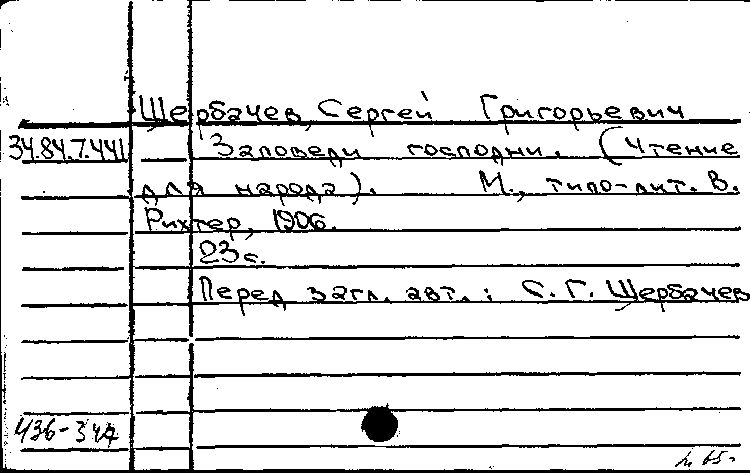 Щербачев, Сергей Григорьевич
34.84.7.441 Заповеди господни. (Чтение
для народа). М., типо-лит. В.
Рихтер, 1906.
23 с.
Перед загл. авт.: С. Г. Щербачев
436-34